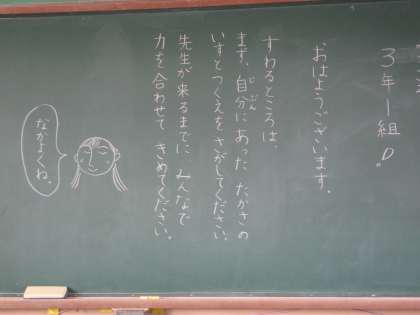 3年1組の
おはようございます。
すわるところは、
まず、自分にあった たかさの
じ ぶん
いすとつくえをさがしてください。
先生が来るまでに みんなで
力を合わせて きめてください。
なかよくね。